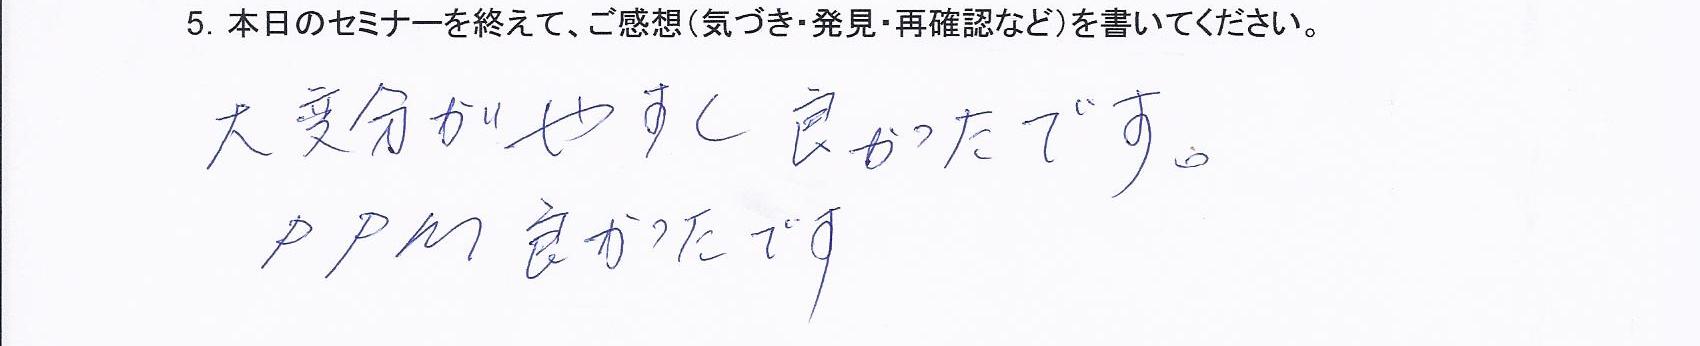 5. 本日のセミナーを終えて、ご感想(気づき・発見・再確認など)を書いてください。
大変分がやすく良かったです。
PPM良かったです